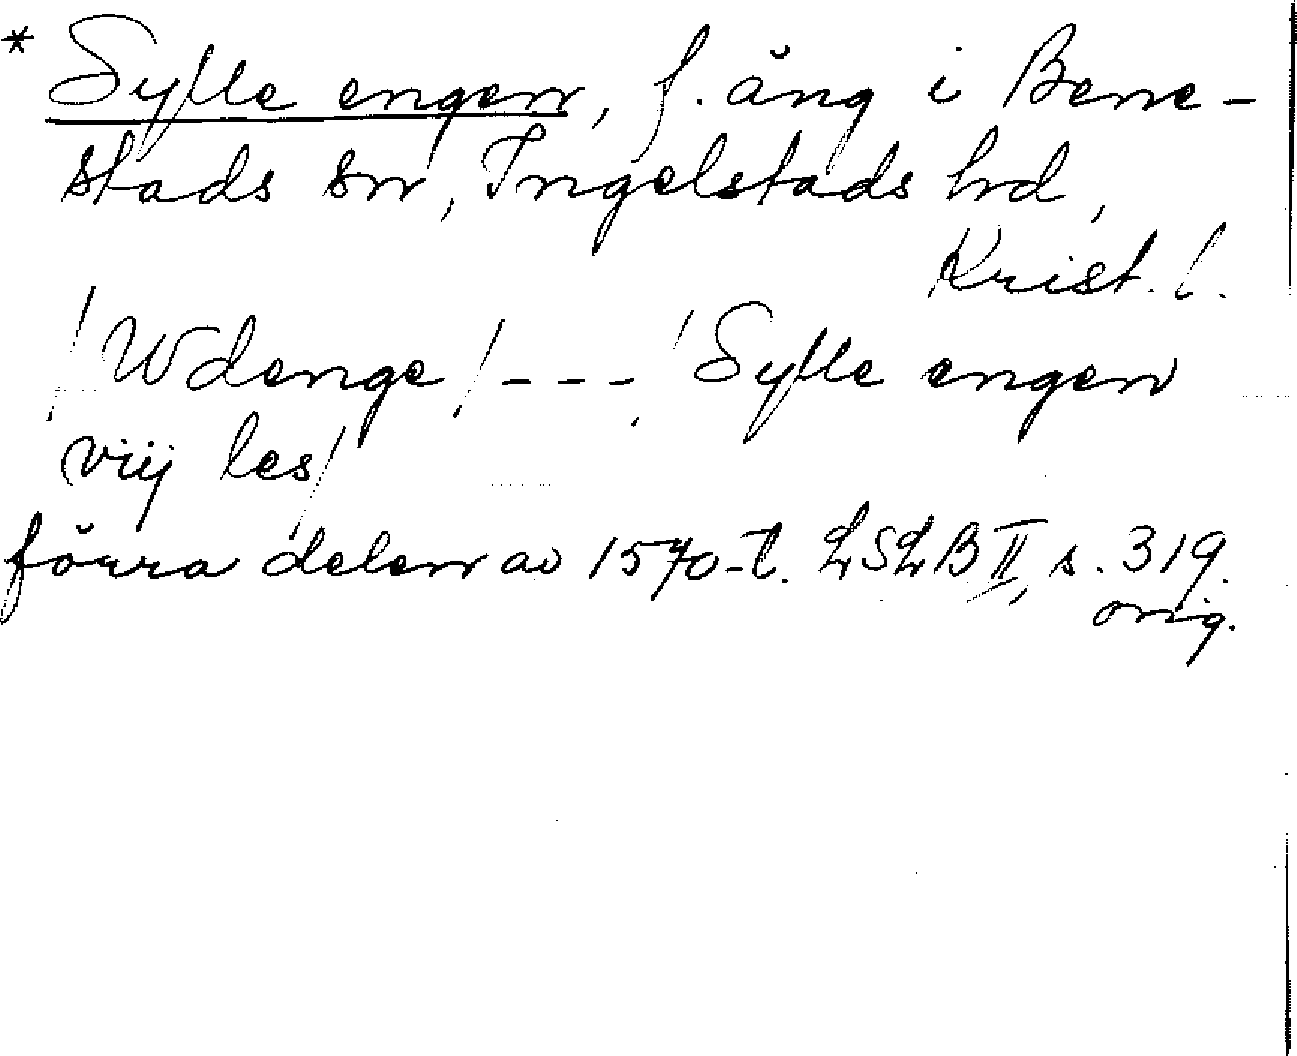 * Sylle engen, f. äng i Bene-
stads sn, Ingelstads hd,
Krist. l.
/Wdenge/ - - -, /Sylle engen
viij les/
förra delen av 1570-t. LSLB II, s. 319.
orig.